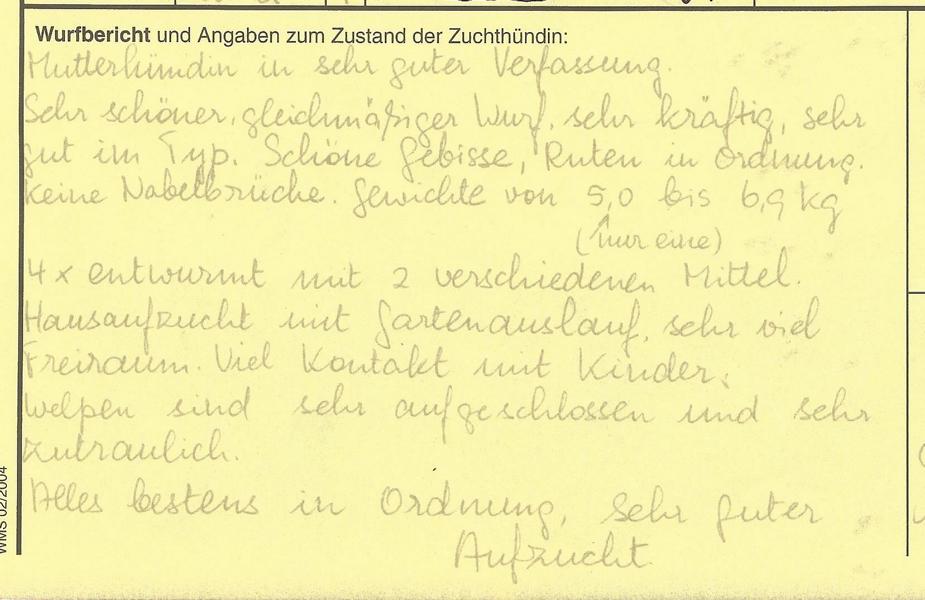 Wurfbericht und Angaben zum Zustand der Zuchthündin:
Mutterhündin in sehr guter Verfassung.
Sehr schöner, gleichmäßiger Wurf, sehr kräftig, sehr
gut im Typ. Schöne Gebisse, Ruten in Ordnung.
Keine Nabelbrüche. Gewichte von 5,0 bis 6,9 kg
(nur eine)
4x entwurmt mit 2 verschiedenen Mittel.
Hausaufzucht mit Gartenauslauf, sehr viel
Freiraum. Viel Kontakt mit Kinder.
Welpen sind sehr aufgeschlossen und sehr
zutraulich.
Alles bestens in Ordnung, sehr guter
Aufzucht.
WMS 02/2004